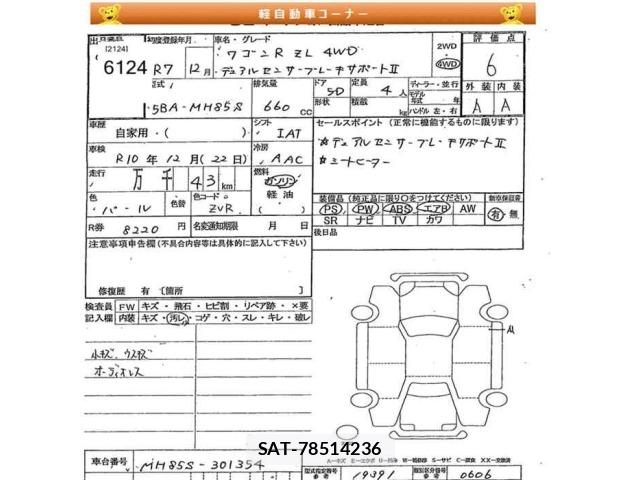 軽自動車コーナー
出品番号 [2124] 6124
初度登録年月 R7 12月
車名・グレード ワゴンR ZL 4WD デュアルセンサーブレーキサポートⅡ
2WD 4WD
評価点 6
外装 内装
A A
型式 5BA-MH85S
排気量 660 cc
ドア 形状 5D
定員 4人
積載 kg
ディーラー・並行
モデル年式 年
ハンドル 左・右
車歴 自家用・( )
シフト IAT
セールスポイント (正常に機能するものに限ります)
☆デュアルセンサーブレーキサポートⅡ
☆シートヒーター
車検 R10年12月(22日)
冷房 AAC
走行 万 千 43km
燃料 ガソリン 軽油 ( )
色 パール
色替
色コード ZVR
装備品 (純正品に限り○をつけてください)
PS PW ABS エアB AW
SR ナビ TV カワ
新車保証書 有 無
R券 8220円
名変通知期限 月 日
後日品
注意事項申告欄(不具合内容等は具体的に記入して下さい)
修復歴 有 〔箇所 〕
検査員記入欄
FW キズ・飛石・ヒビ割・リペア跡・×要
内装 キズ・汚レ・コゲ・穴・スレ・キレ・破レ
小キズ、ウスキズ
オーディオレス
A1
SAT-78514236
車台番号 MH85S-301354
型式指定番号 参考 19391
類別区分番号 参考 0606